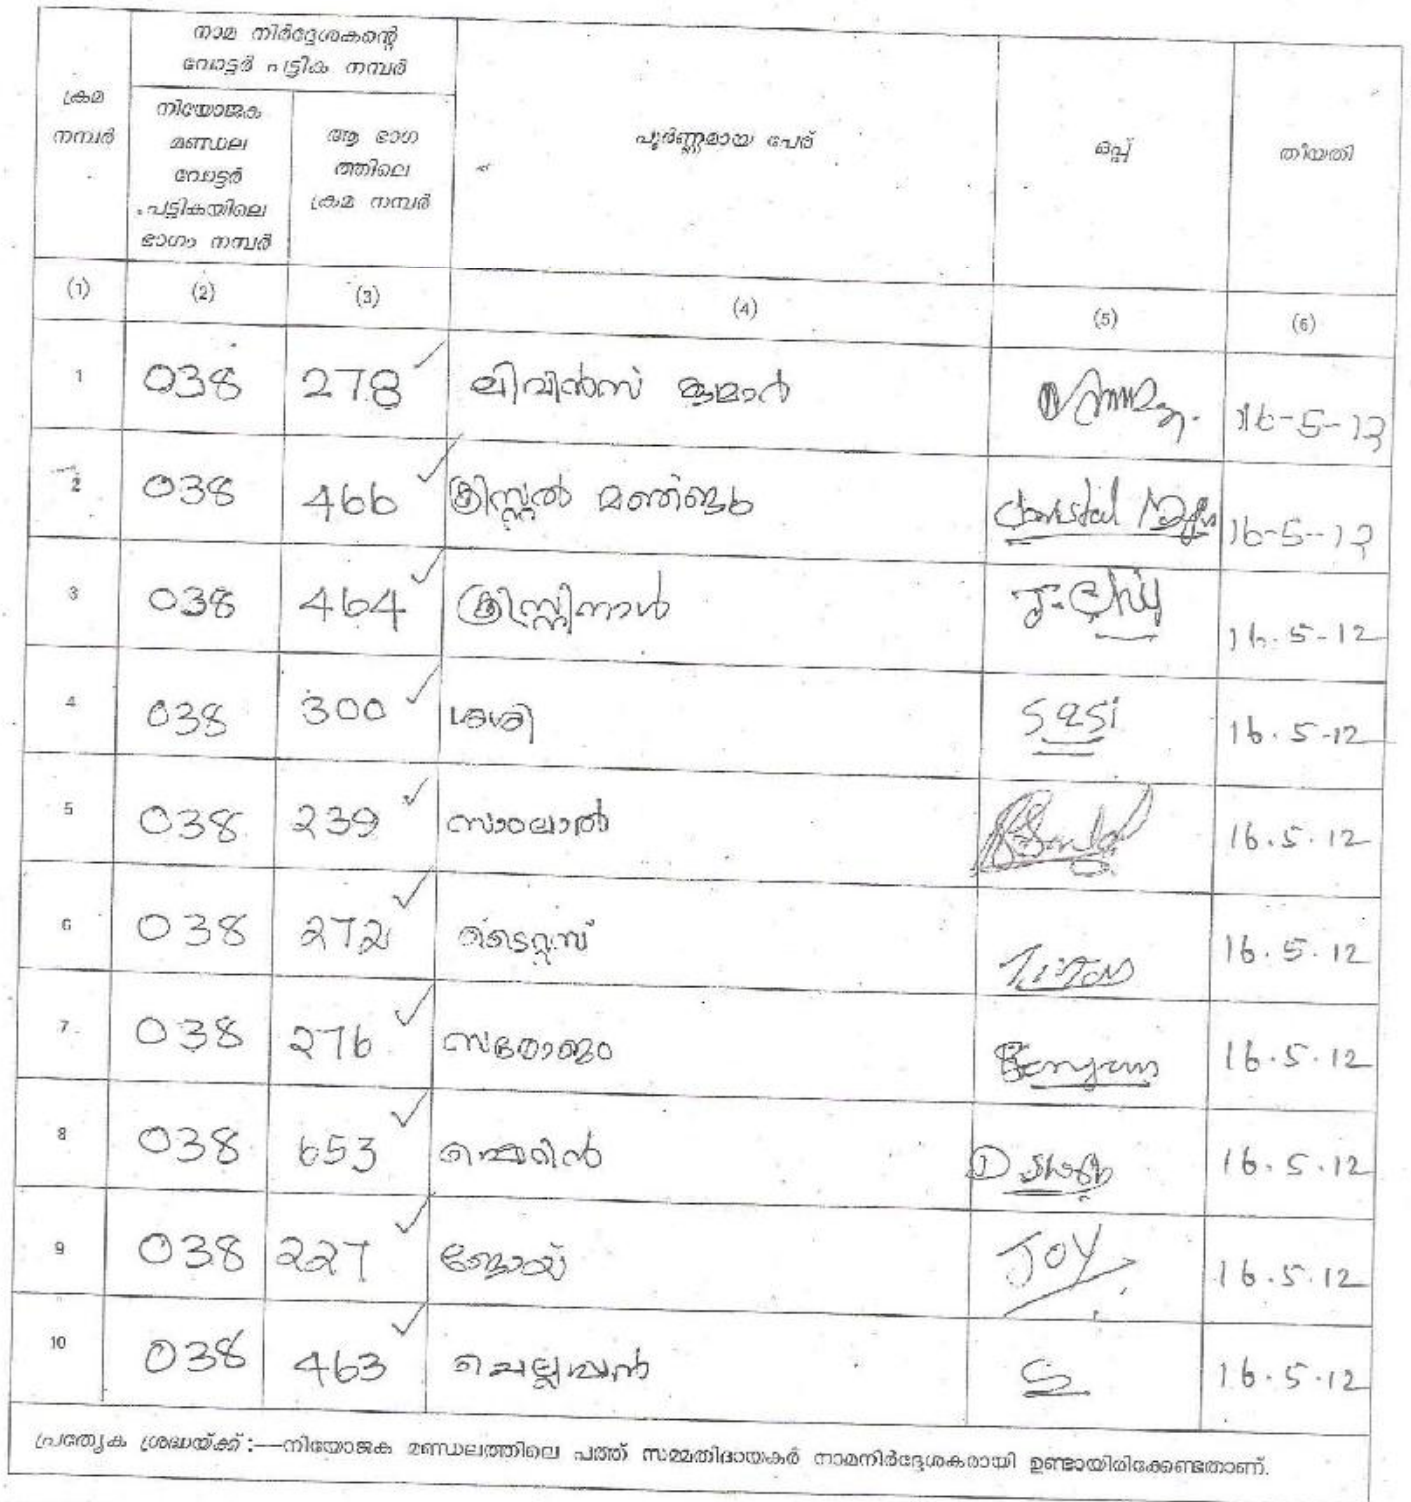 ക്രമ
നമ്പർ
നാമ നിർദ്ദേശകന്റെ
വോട്ടർ പട്ടിക നമ്പർ
നിയോജക
മണ്ഡല
വോട്ടർ
പട്ടികയിലെ
ഭാഗം നമ്പർ
ആ ഭാഗ
ത്തിലെ
ക്രമ നമ്പർ
പൂർണ്ണമായ പേര്
ഒപ്പ്
തീയതി
(1) (2) (3) (4) (5) (6)
1 038 278 ലിവിൻസ് കുമാർ 16-5-12
2 038 466 ക്രിസ്റ്റൽ മഞ്ജു 16-5-12
3 038 464 ക്രിസ്റ്റിനാൾ 16.5-12
4 038 300 ശശി Sasi 16.5-12
5 038 239 സാംലാൽ 16.5.12
6 038 272 ടൈറ്റസ് 16.5.12
7 038 276 16.5.12
8 038 653 16.5.12
9 038 227 ജോയ് JOY 16.5.12
10 038 463 ചെല്ലപ്പൻ S 16.5.12
പ്രത്യേക ശ്രദ്ധയ്ക്ക്:—നിയോജക മണ്ഡലത്തിലെ പത്ത് സമ്മതിദായകർ നാമനിർദ്ദേശകരായി ഉണ്ടായിരിക്കേണ്ടതാണ്.